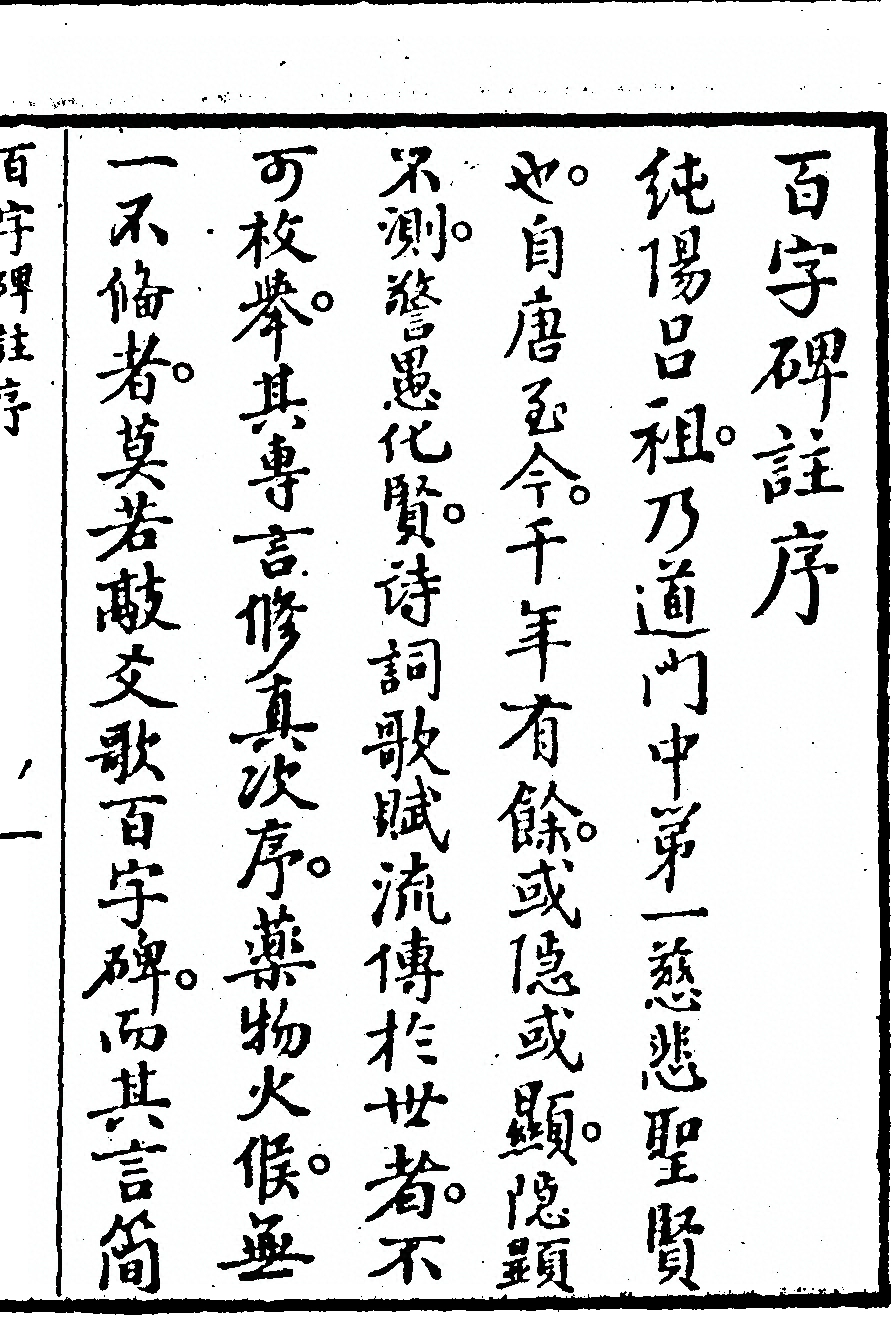 百字碑註序
純陽呂祖。乃道門中第一慈悲聖賢
也。自唐至今。千年有餘。或隱或顯。隱顯
不測。警愚化賢。詩詞歌賦流傳於世者。不
可枚舉。其專言修真次序。藥物火候。無
一不備者。莫若敲爻歌百字碑。而其言簡
百字碑註序
一